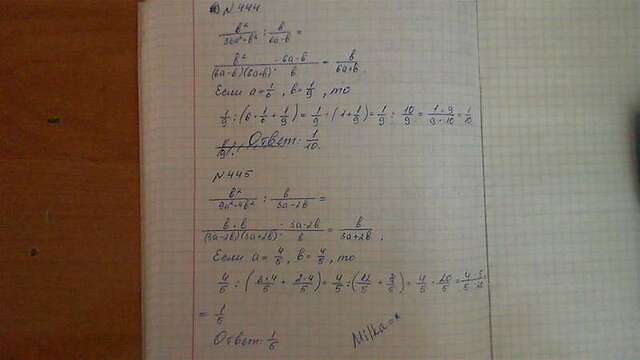 N 444
b² / (36a²-b²) : b / (6a-b) =
b² / ((6a-b)(6a+b)) · (6a-b) / b = b / (6a+b).
Если a = 1/6, b = 1/9, то
1/9 : (6 · 1/6 + 1/9) = 1/9 : (1 + 1/9) = 1/9 : 10/9 = (1·9) / (9·10) = 1/10
Ответ: 1/10.
N 445
b² / (9a²-4b²) : b / (3a-2b) =
b·b / ((3a-2b)(3a+2b)) · (3a-2b) / b = b / (3a+2b).
Если a = 4/5, b = 4/5, то
= 1/5
Ответ: 1/5
Milka=*